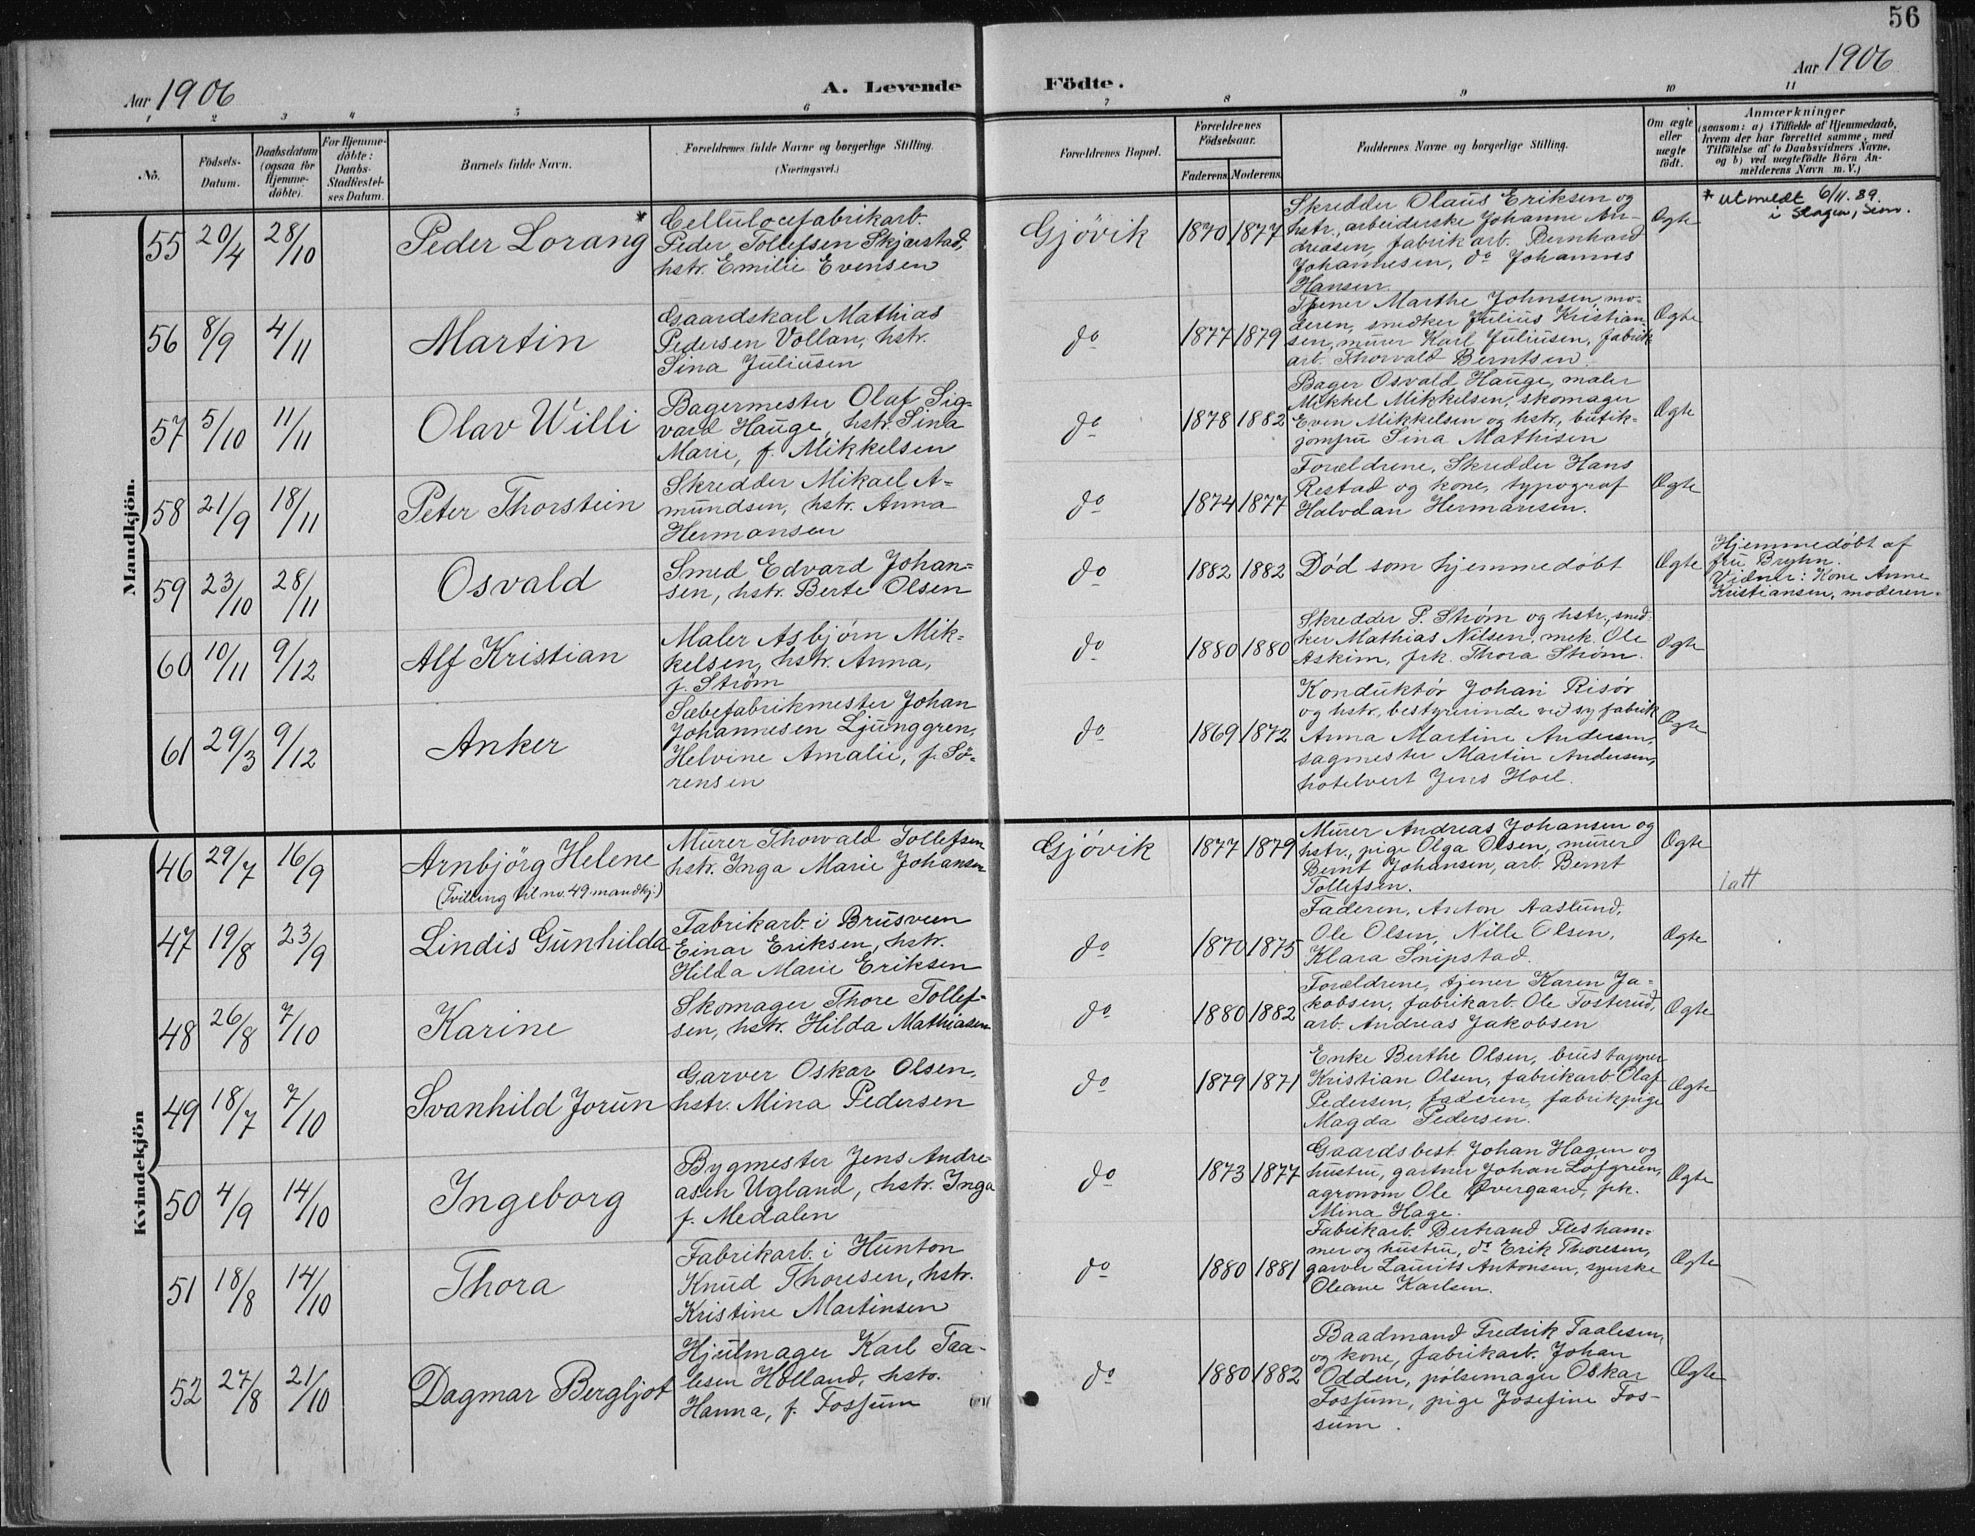 56
Aar 1906
A. Levende Födte.
Aar 1906
1 2 3 4 5 6 7 8 9 10 11
No.
Födsels-
Datum.
Daabsdatum
(ogsaa for
Hjemme-
döbte).
For Hjemme-
döbte:
Daabs-
Stadfæstel-
ses Datum.
Barnets fulde Navn.
Forældrenes fulde Navne og borgerlige Stilling.
(Næringsvei.)
Forældrenes Bopæl.
Forældrenes
Födselsaar.
Faderens. Moderens.
Faddernes Navne og borgerlige Stilling.
Om ægte
eller
uægte
födt.
Anmærkninger
(saasom: a) i Tilfælde af Hjemmedaab,
hvem der har forrettet samme, med
Tilföielse af to Daabsvidners Navne,
og b) ved uægtefödte Börn An-
melderens Navn m. V.)
Mandkjön.
55 20/4 28/10 Peder Lorang *
Cellulocefabrikarb.
Peder Tollefsen Skjærstad,
hstr. Emilie Evensen
Gjøvik 1870 1877
Skredder Olaus Eriksen og
hstr., arbeiderske Johanne An-
dreasen, fabrikarb. Bernhard
Johannesen, do Johannes
Hansen.
Ægte
* utmeldt 6/11. 89.
i Slagen, Sem.
56 8/9 4/11 Martin
Gaardskarl Mathias
Pedersen Vollan, hstr.
Sina Juliusen
do 1877 1879
Tjener Marthe Johnsen, mo-
deren, snedker Julius Kristian-
sen, murer Karl Juliusen, fabrik
arb. Thorvald Berntsen
Ægte
57 5/10 11/11 Olav Willi
Bagermester Olaf Sig-
vard Hauge, hstr. Sina
Marie, f. Mikkelsen
do 1878 1882
Bager Osvald Hauge, maler
Mikkel Mikkelsen, skomager
Even Mikkelsen og hstr., butik-
jomfru Sina Mathisen
Ægte
58 21/9 18/11 Peter Thorstein
Skredder Mikael A-
mundsen, hstr. Anna
Hermansen
do 1874 1877
Forældrene, Skredder Hans
Restad og kone, typograf
Halvdan Hermansen.
Ægte
59 23/10 28/11 Osvald
Smed Edvard Johan-
sen, hstr. Berte Olsen
do 1882 1882
Død som hjemmedøbt
Ægte
Hjemmedøbt af
fru Bryhn.
Vidner: Kone Anne
Kristiansen, moderen.
60 10/11 9/12 Alf Kristian
Maler Asbjørn Mik-
kelsen, hstr. Anna,
f. Strøm
do 1880 1880
Skredder P. Strøm og hstr., sned-
ker Mathias Nilsen, mek. Ole
Askim, frk. Thora Strøm.
Ægte
61 29/3 9/12 Anker
Sæbefabrikmester Johan
Johannesen Ljunggren,
Helvine Amalie, f. Sö-
rensen
do 1869 1872
Konduktør Johan Risör
og hstr., bestyrerinde ved syfabrik
Anna Martine Andersen,
sagmester Martin Andersen,
hotelvert Jens Hoel.
Ægte
Kvindekjön
46 29/7 16/9 Arnbjörg Helene
(Tvilling til no. 49 mandkj.)
Murer Thorvald Tollefsen
hstr. Inga Marie Johansen
Gjøvik 1877 1879
Murer Andreas Johansen og
hstr., pige Olga Olsen, murer
Bernt Johansen, arb. Bernt
Tollefsen.
Ægte
1 att
47 19/8 23/9 Lindis Gunhilda
Fabrikarb. i Brusveen
Einar Eriksen, hstr.
Hilda Marie Eriksen
do 1870 1875
Faderen, Anton Aaslund,
Ole Olsen, Nille Olsen,
Klara Snipstad.
Ægte
48 26/8 7/10 Karine
Skomager Thore Tollef-
sen, hstr. Hilda Mathiasen
do 1880 1882
Forældrene, tjener Karen Ja-
kobsen, fabrikarb. Ole Fosterud,
arb. Andreas Jakobsen
Ægte
49 18/7 7/10 Svanhild Jorun
Garver Oskar Olsen,
hstr. Mina Pedersen
do 1879 1871
Enke Berthe Olsen, brustapper
Kristian Olsen, fabrikarb. Olaf
Pedersen, faderen, fabrikpige
Magda Pedersen.
Ægte
50 4/9 14/10 Ingeborg
Bygmester Jens Andre-
asen Ugland, hstr. Inga
f. Medalen
do 1873 1877
Gaardsbest. Johan Hagen og
hustru, gartner Johan Løfgreen,
agronom Ole Øvergaard, frk.
Mina Hage.
Ægte
51 18/8 14/10 Thora
Fabrikarb. i Hunton
Knud Thoresen, hstr.
Kristine Martinsen
do 1880 1881
Fabrikarb. Bertrand Fleskam-
mer og hustru, do Erik Thoresen,
garver Laurits Antonsen, syerske
Oleane Karlsen.
Ægte
52 27/8 21/10 Dagmar Bergljot
Hjulmager Karl Taa-
lesen Holland, hstr.
Hanna, f. Fossum
do 1880 1882
Baadmand Fredrik Taalesen,
og kone, fabrikarb. Johan
Odden, pølsemager Oskar
Fossum, pige Josefine Fos-
sum.
Ægte